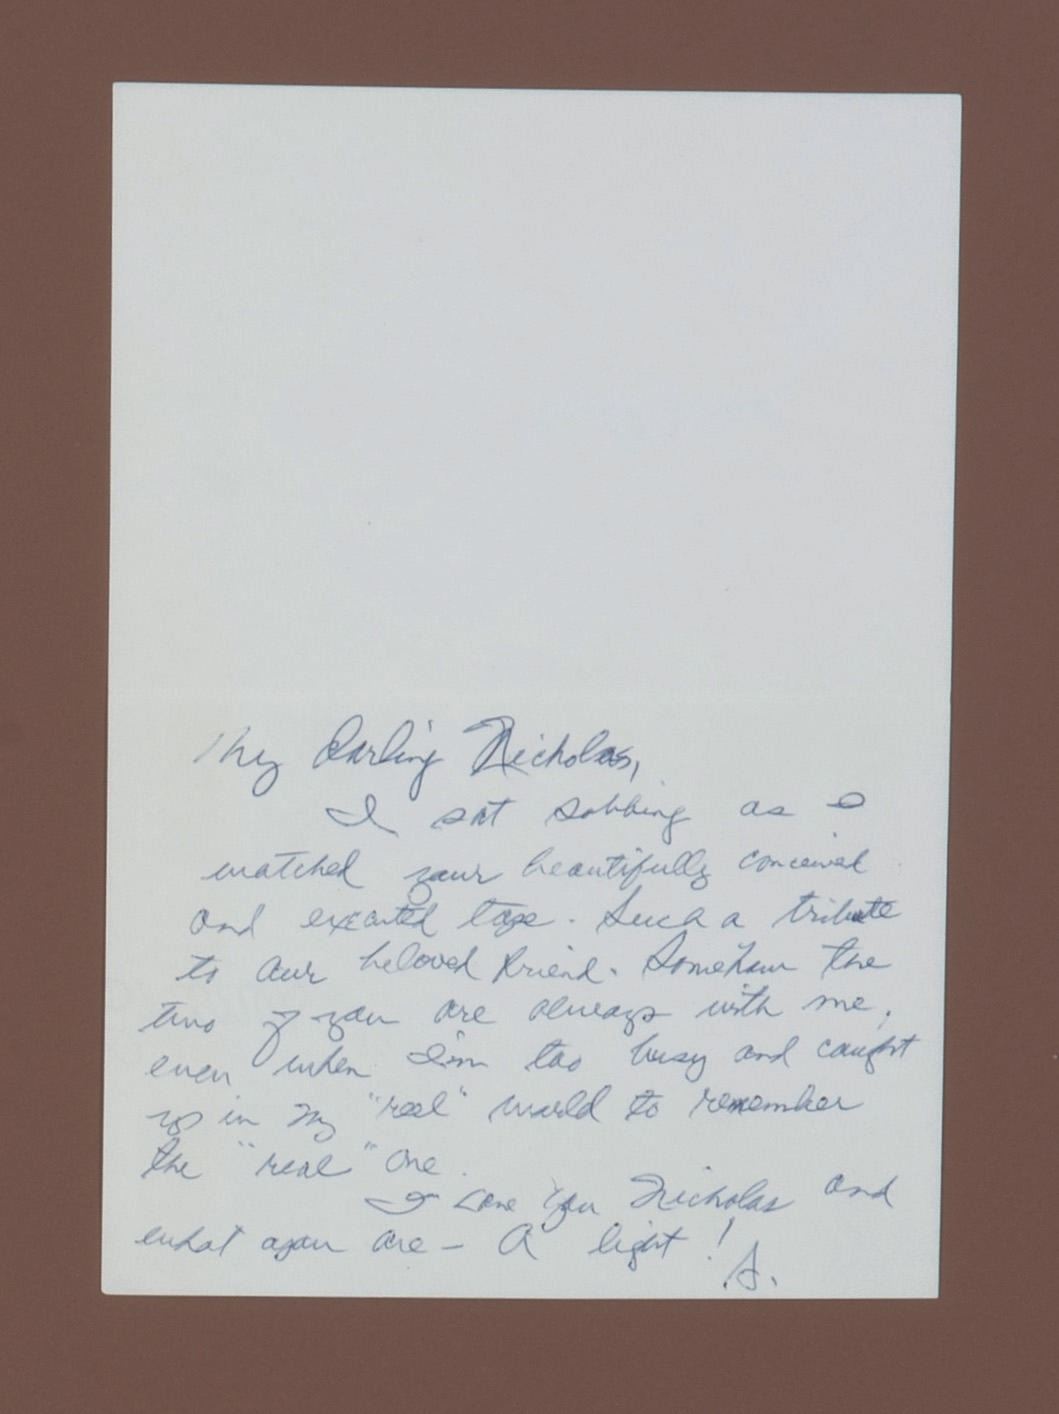 My Darling Nicholas,
I sat sobbing as I
watched your beautifully conceived
and executed tape. Such a tribute
to our beloved friend. Somehow the
two of you are always with me,
even when I'm too busy and caught
up in my "reel" world to remember
the "real" one.
I love you Nicholas and
what you are – A light!
S.